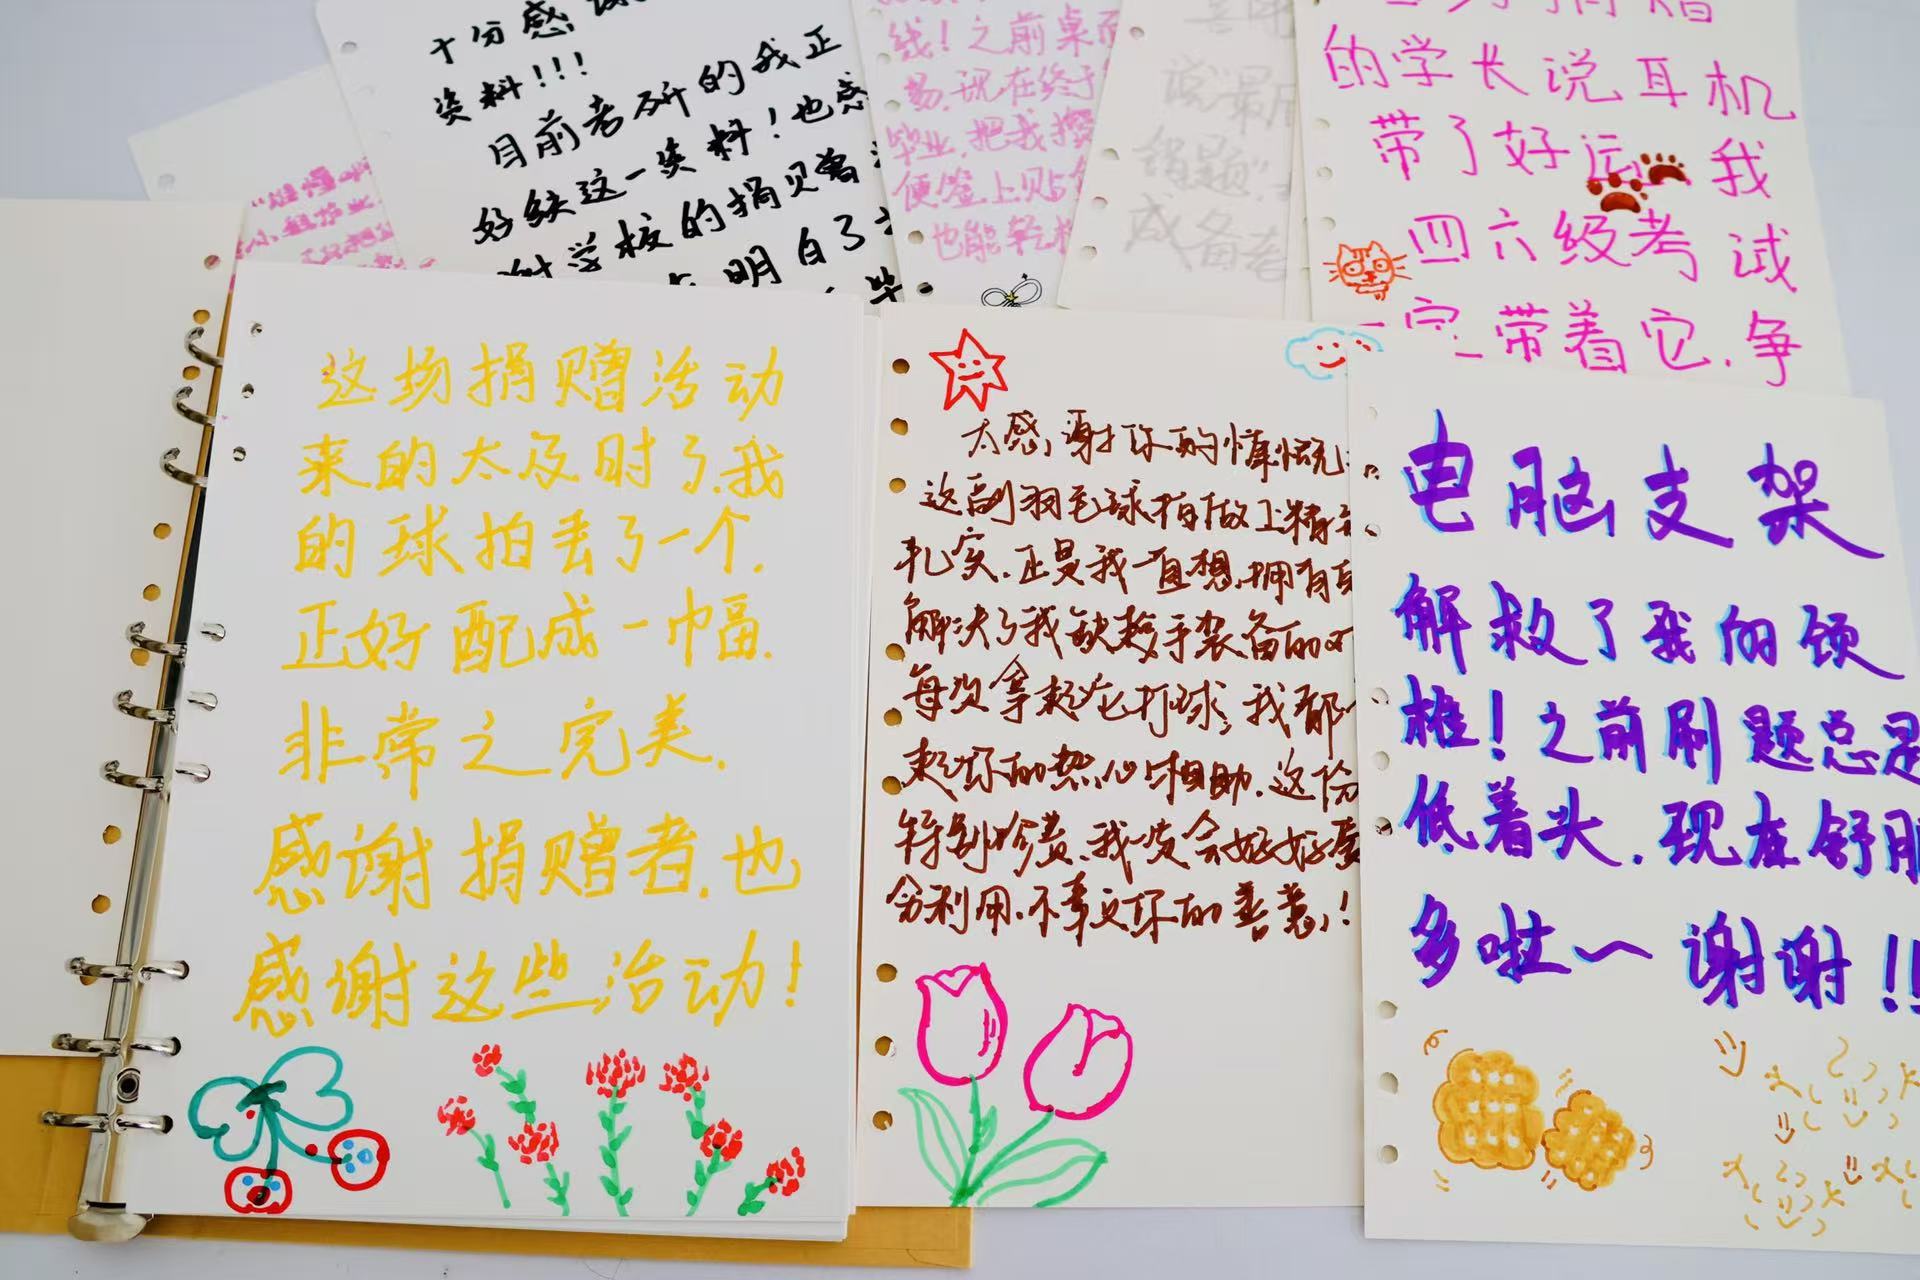 十分感谢
资料!!!
目前考研的我正
好缺这一类料!也感
谢学校的捐贝曾
明白了
线!之前桌面
易,现在终于
毕业,把我
便签上贝占
也能轻松
说最后
错题"
成备考
的学长说耳机
带了好运 我
四六级考试
一定带着它,争
这场捐赠活动
来的太及时了,我
的球拍丢了一个,
正好配成一幅,
非常之完美,
感谢捐赠者,也
感谢这些活动!
太感谢你的慷慨
这副羽毛球拍做工精
扎实,正是我一直想拥有
解决了我缺趁手装备的
每次拿起它打球,我都
起你的热心相助,这份
特别珍贵,我发会好好
分利用,不辜文你的善意!
电脑支架
解救了我的颈
椎!之前刷题总是
低着头,现在舒服
多啦~谢谢!!